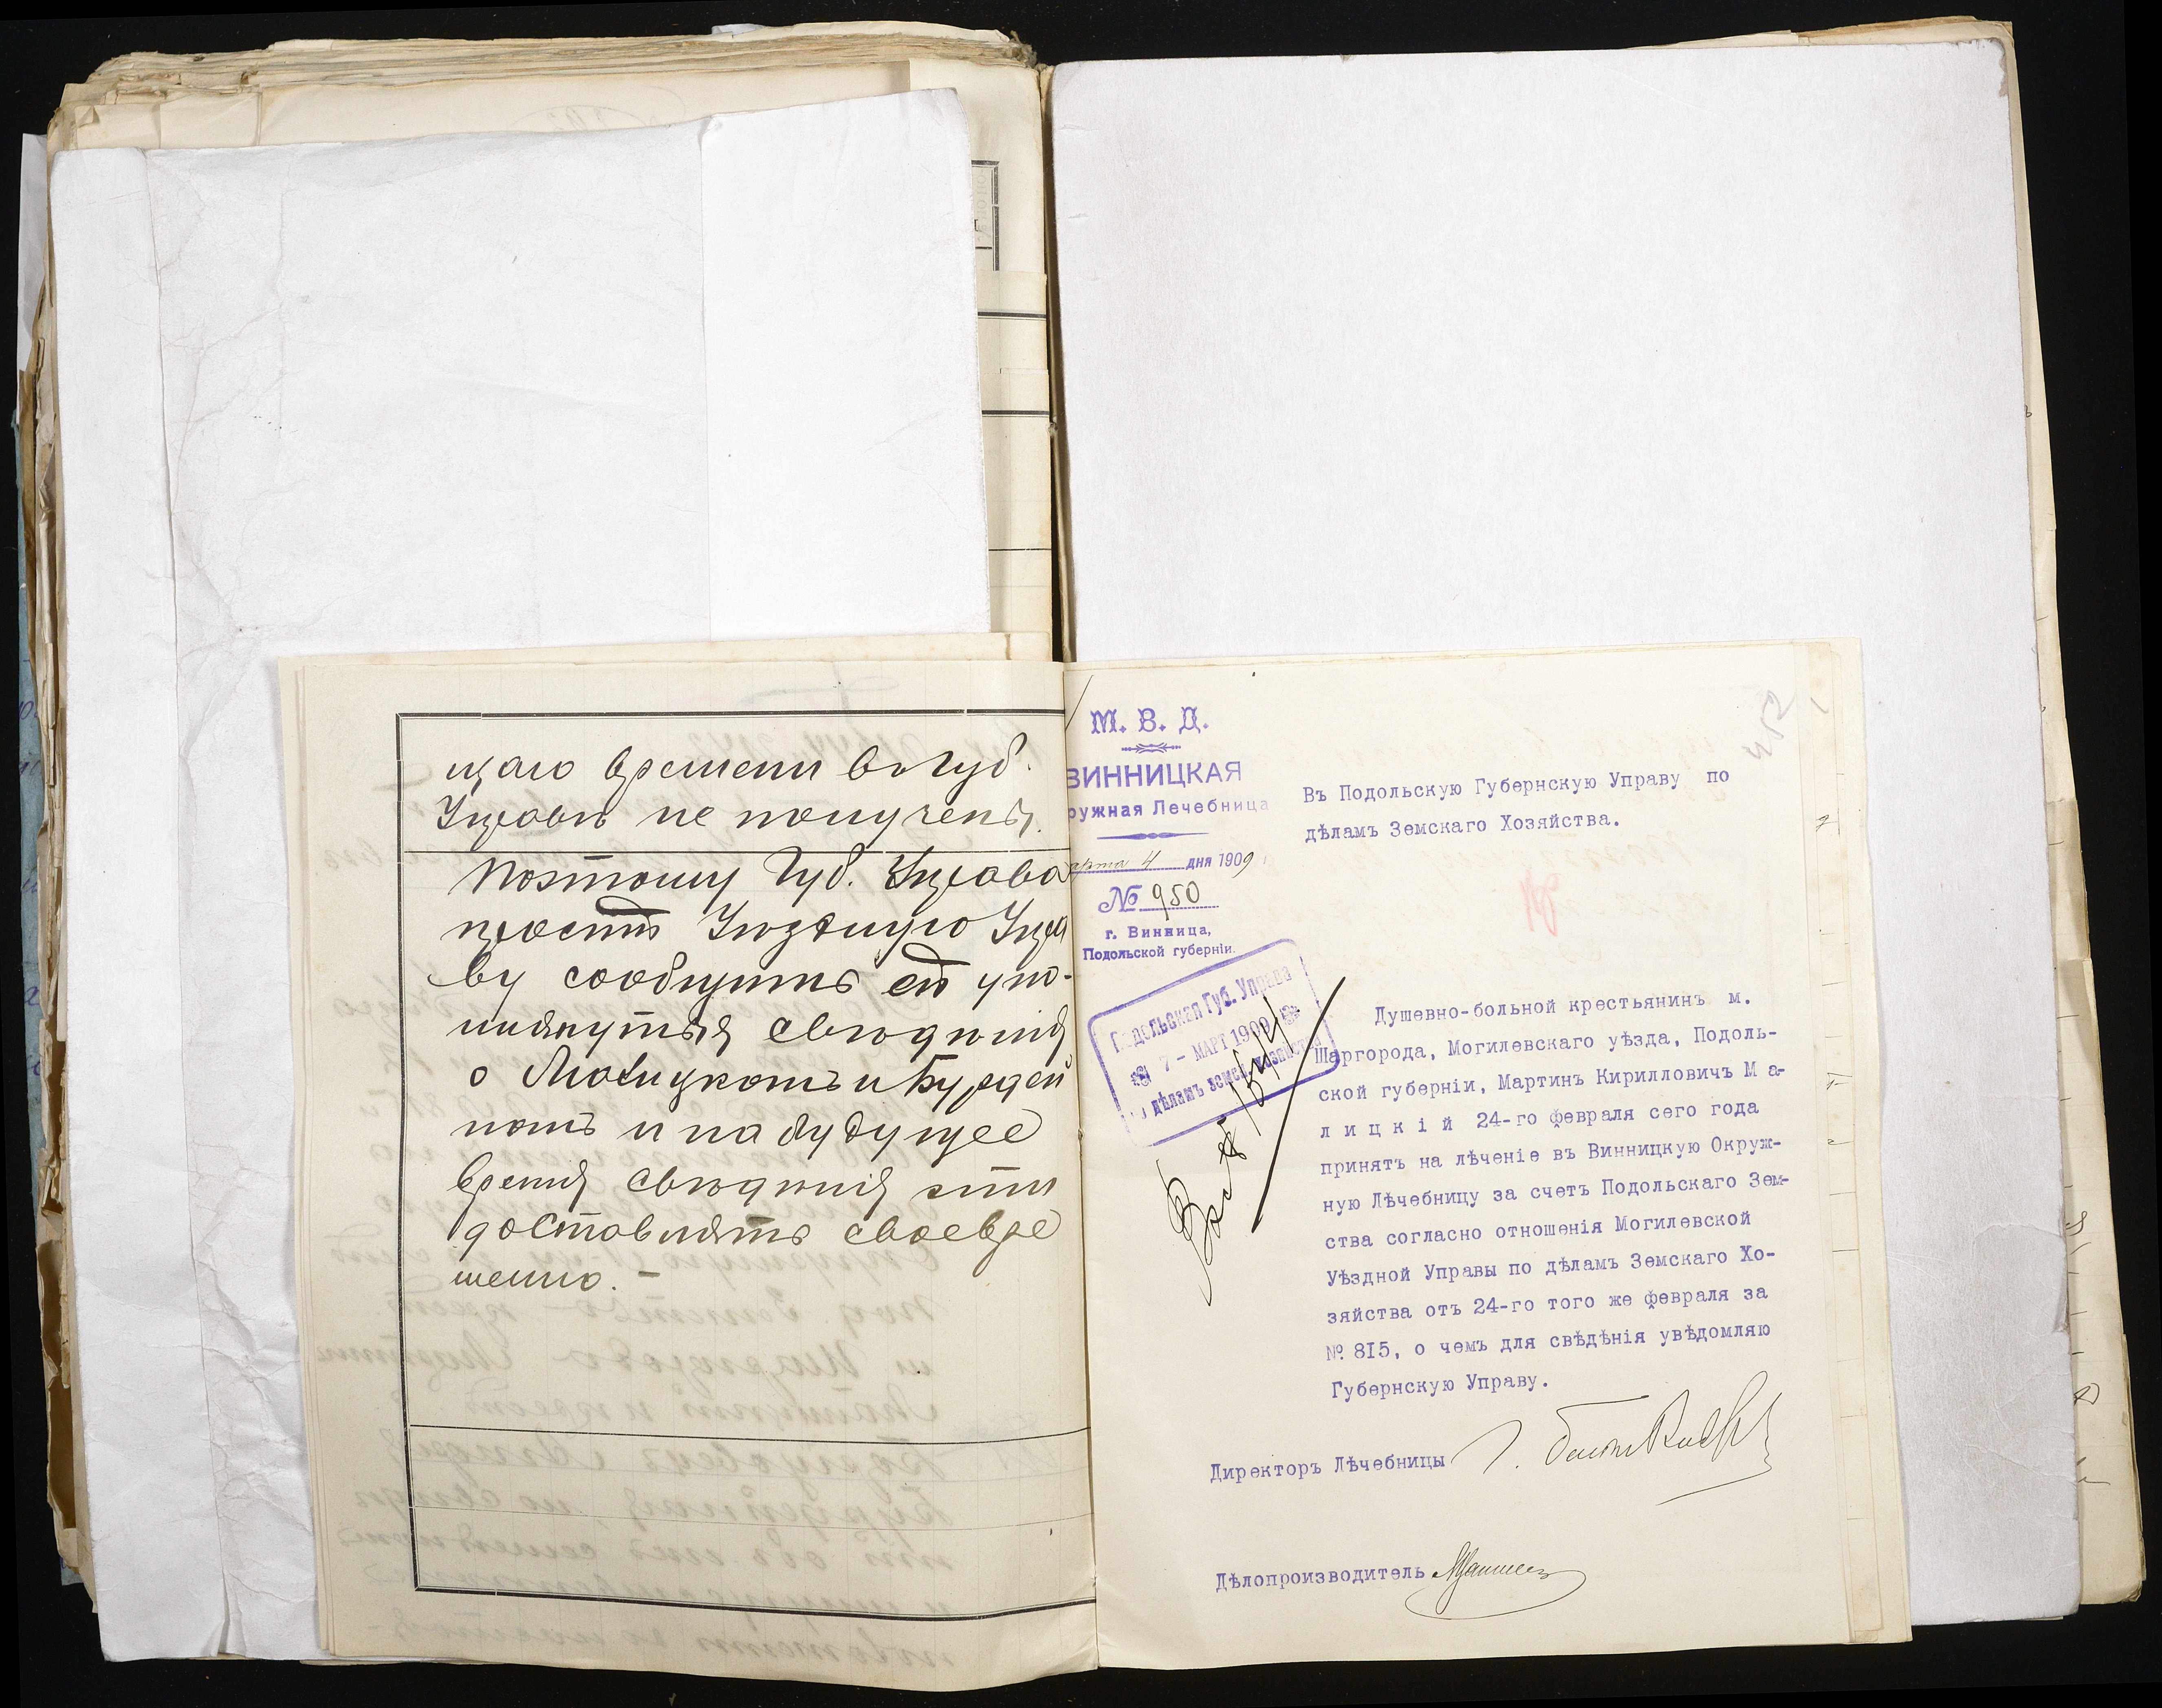 щаго времени въ Губ.
Управѣ не получены.
Поэтому Губ. Управа
проситъ Уѣздную Упра
ву сообщить ей упо-
мянутыя свѣдѣнія
о Малицкомъ и Бурдей
номъ и на будущее
время свѣдѣнія эти
доставлять своевре
менно. –
М. В. Д.
ВИННИЦКАЯ
ружная Лечебница
арта 4 дня 1909
№ 950
г. Винница,
Подольской губерніи.
Подольская Губ. Управа
7 – МАРТ 1909
дѣламъ земск. хозяйства
452
Въ Подольскую Губернскую Управу по
дѣламъ Земскаго Хозяйства.
Душевно-больной крестьянинъ м.
Шаргорода, Могилевскаго уѣзда, Подоль-
ской губерніи, Мартинъ Кирилловичъ М а-
л и ц к і й 24-го февраля сего года
принятъ на лѣченіе въ Винницкую Окруж-
ную Лѣчебницу за счетъ Подольскаго Зем-
ства согласно отношенія Могилевской
Уѣздной Управы по дѣламъ Земскаго Хо-
зяйства отъ 24-го того же февраля за
№ 8I5, о чемъ для свѣдѣнія увѣдомляю
Губернскую Управу.
Директоръ Лѣчебницы
Дѣлопроизводитель